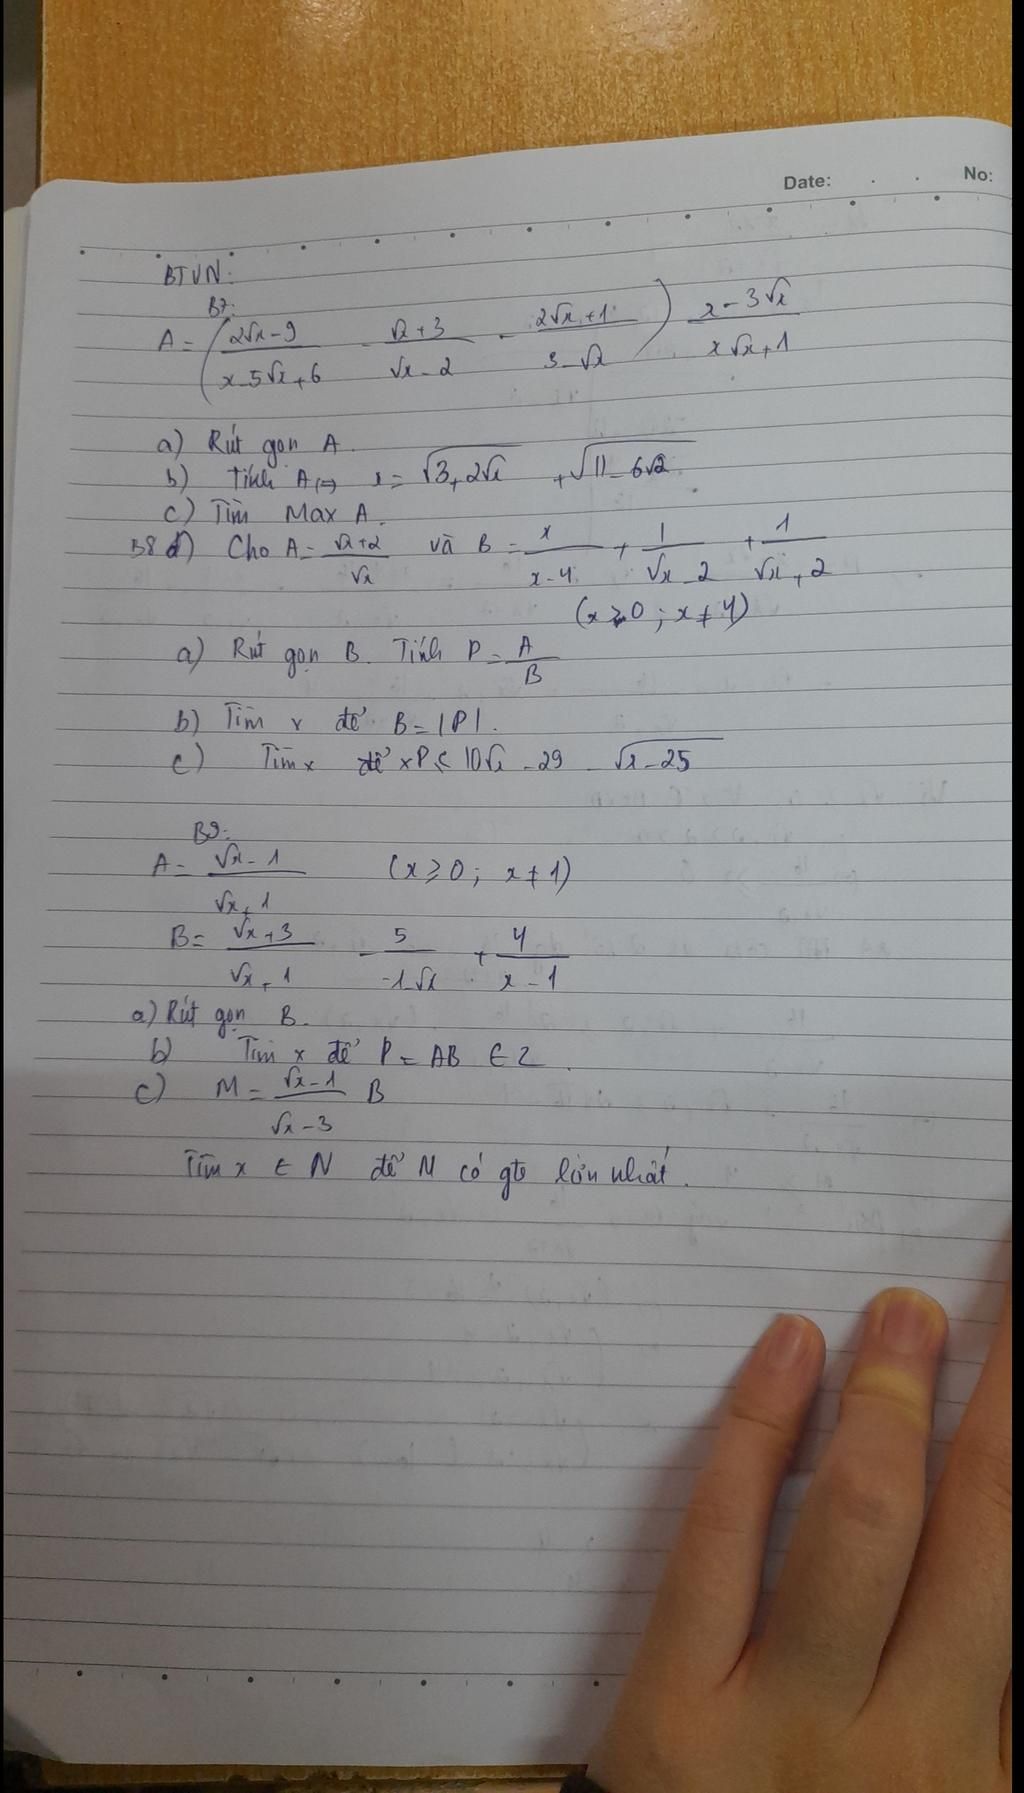 Date: . . No:
BTVN:
B7:
A = (2√x - 9 / x - 5√x + 6 - √x + 3 / √x - 2 - 2√x + 1 / 3 - √x) x - 3√x / x√x + 1
a) Rút gọn A.
b) Tính A ⇔ x = √(3 + 2√2) + √(11 - 6√2)
c) Tìm Max A.
B8 d) Cho A = √x + 2 / √x và B = x / x - 4 + 1 / √x - 2 + 1 / √x + 2
(x ≥ 0 ; x ≠ 4)
a) Rút gọn B. Tính P = A / B
b) Tìm x để B = |P|.
c) Tìm x để xP ≤ 10√x - 29 - √(x - 25)
B9:
A = √x - 1 / √x + 1 (x ≥ 0 ; x ≠ 1)
B = √x + 3 / √x + 1 - 5 / -1 - √x + 4 / x - 1
a) Rút gọn B.
b) Tìm x để P = AB ∈ Z.
c) M = √x - 1 / √x - 3 B
Tìm x ∈ N để M có gtr lớn nhất.